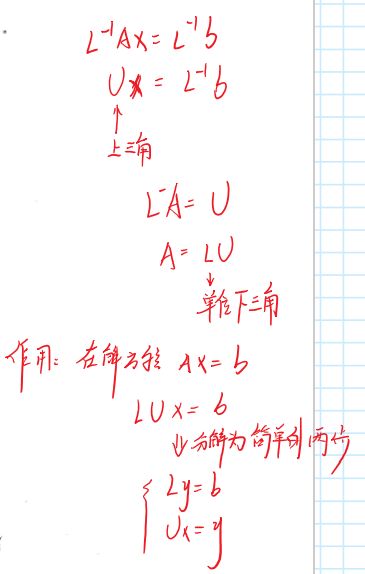 L⁻¹Ax = L⁻¹b
Ux = L⁻¹b
↑
上三角
L⁻A = U
A = LU
↓
单位下三角
作用: 在解方程 Ax = b
LUx = b
↓ 分解为简单的两步
{ Ly = b
Ux = y